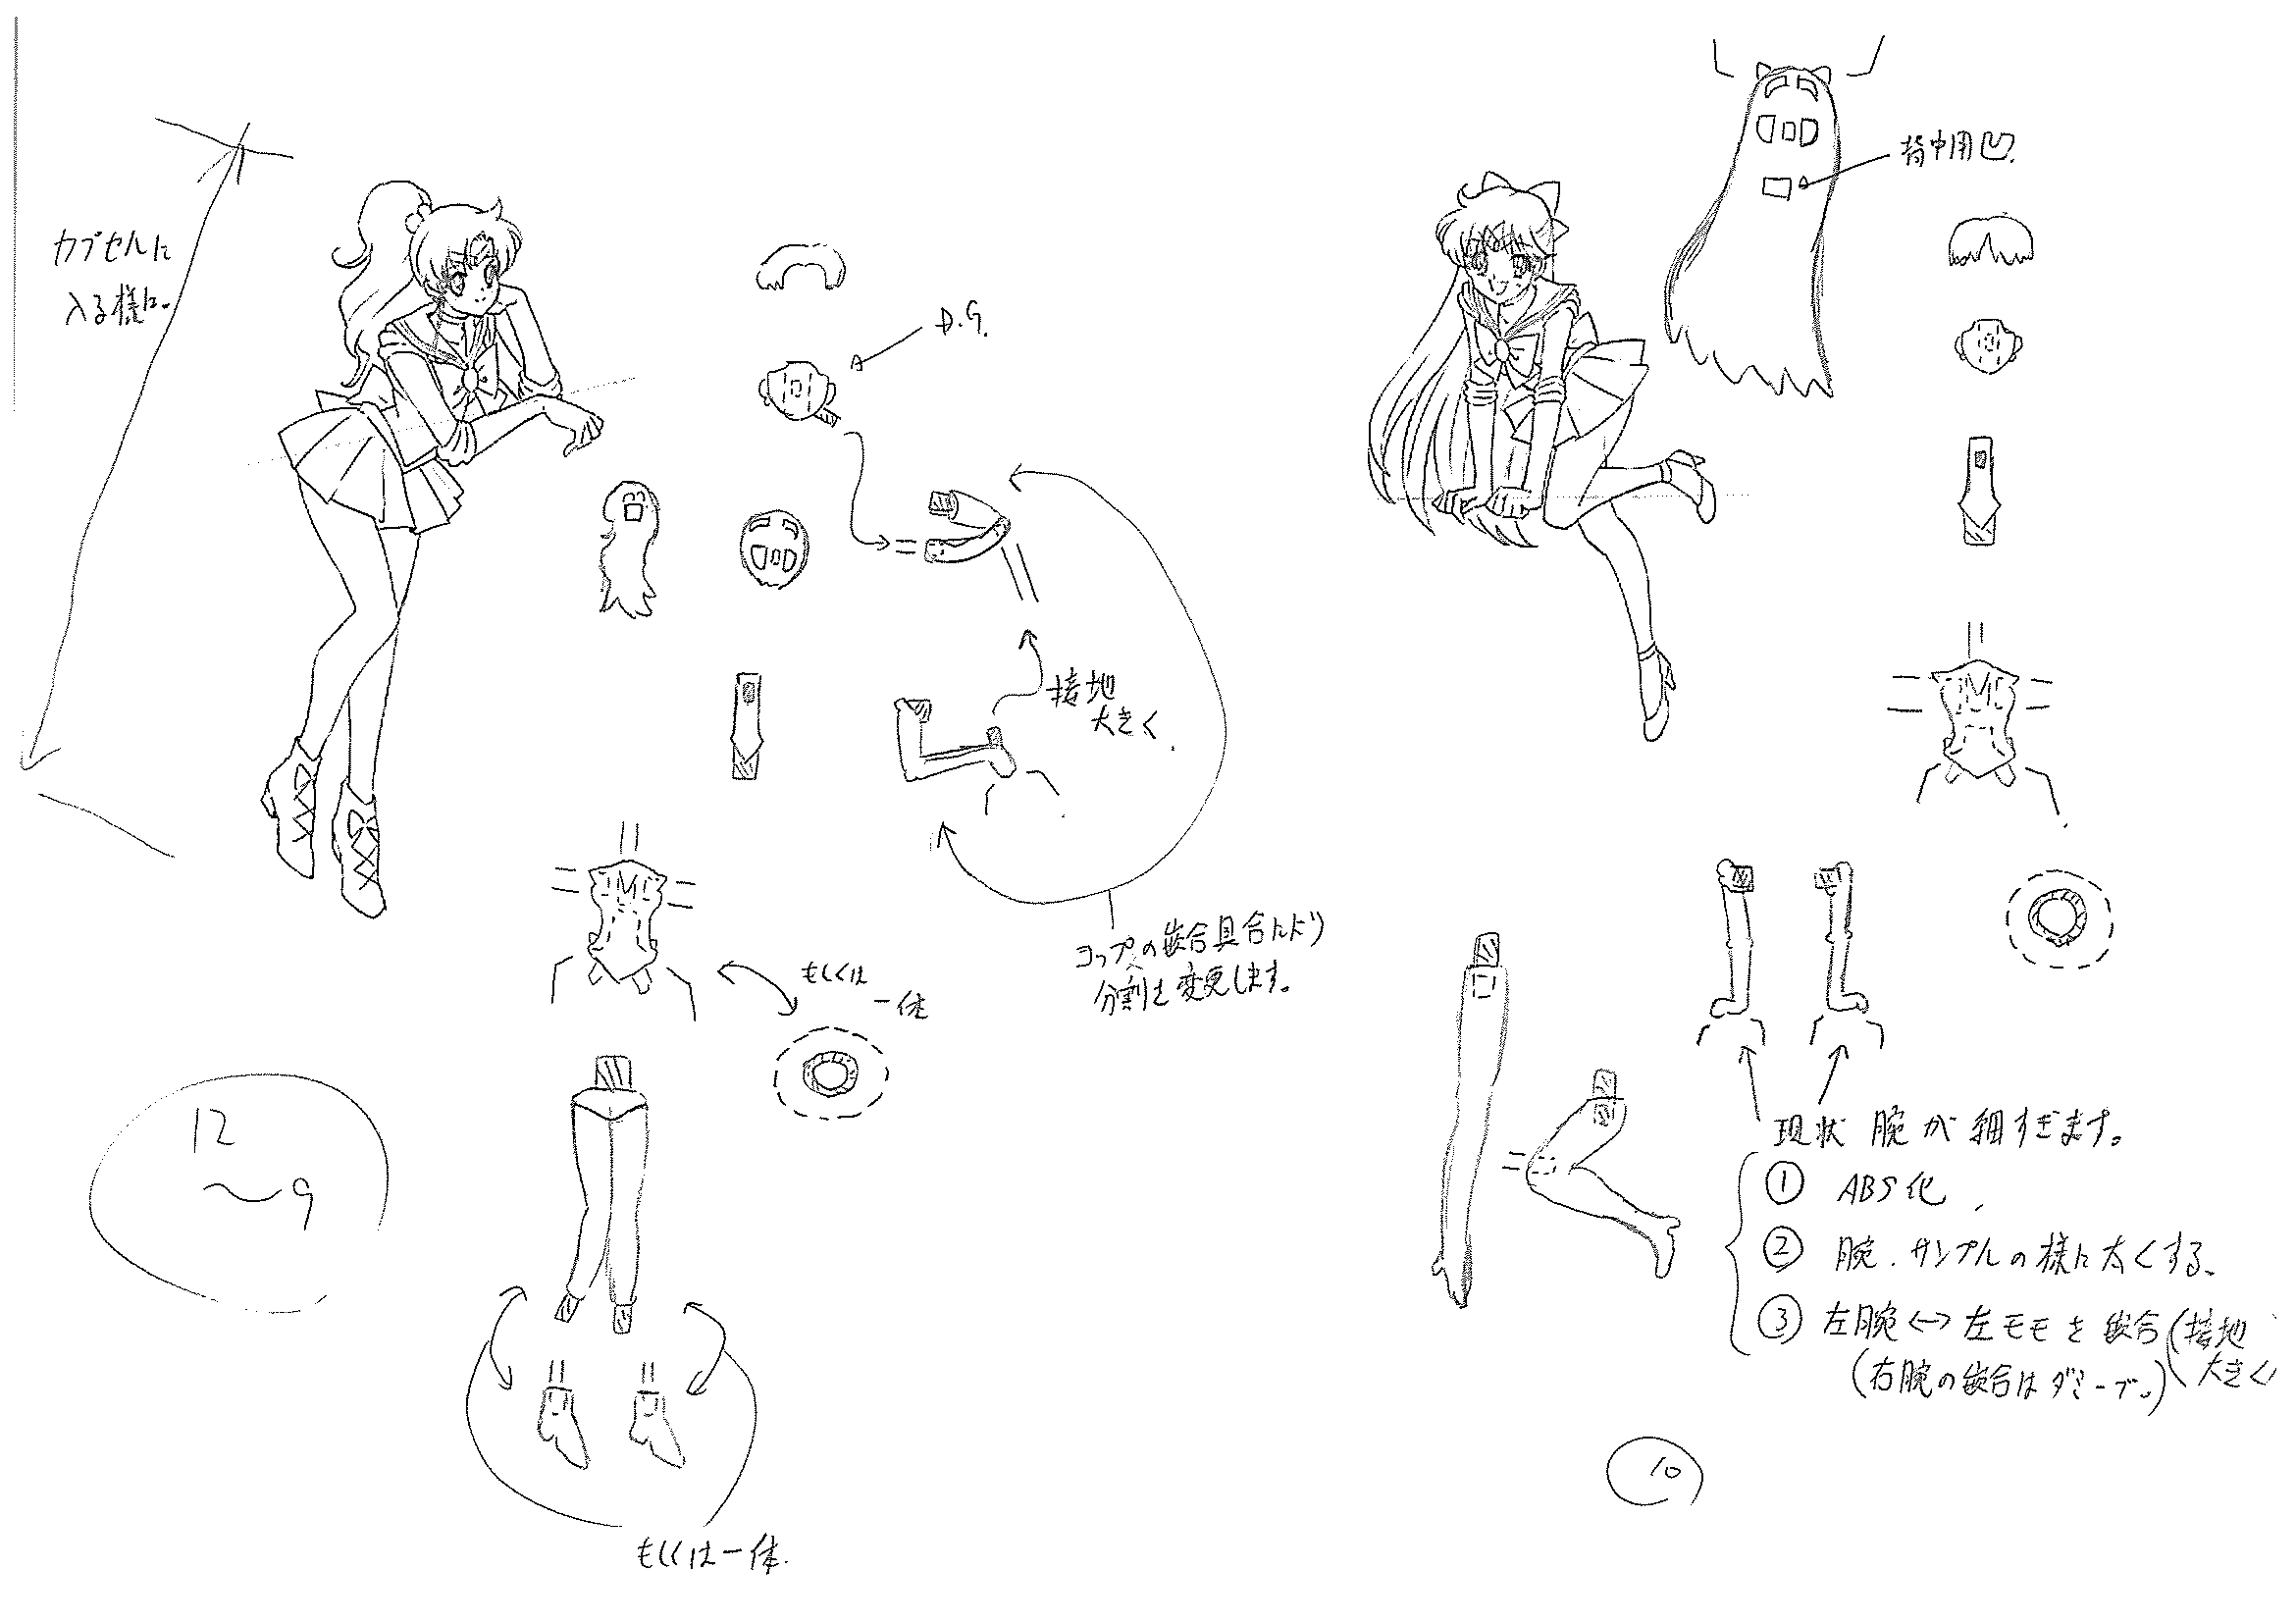 カプセルに
入る様に。
D.G.
接地
大きく.
コップへの嵌合具合により
分割を変更します。
もしくは
一体
12
〜9
もしくは一体.
背中用凹.
現状 腕が細すぎます。
① ABS化.
② 腕.サンプルの様に太くする、
③ 左腕↔左モモを嵌合(接地
大きく
(右腕の嵌合はダミーブ。)
10